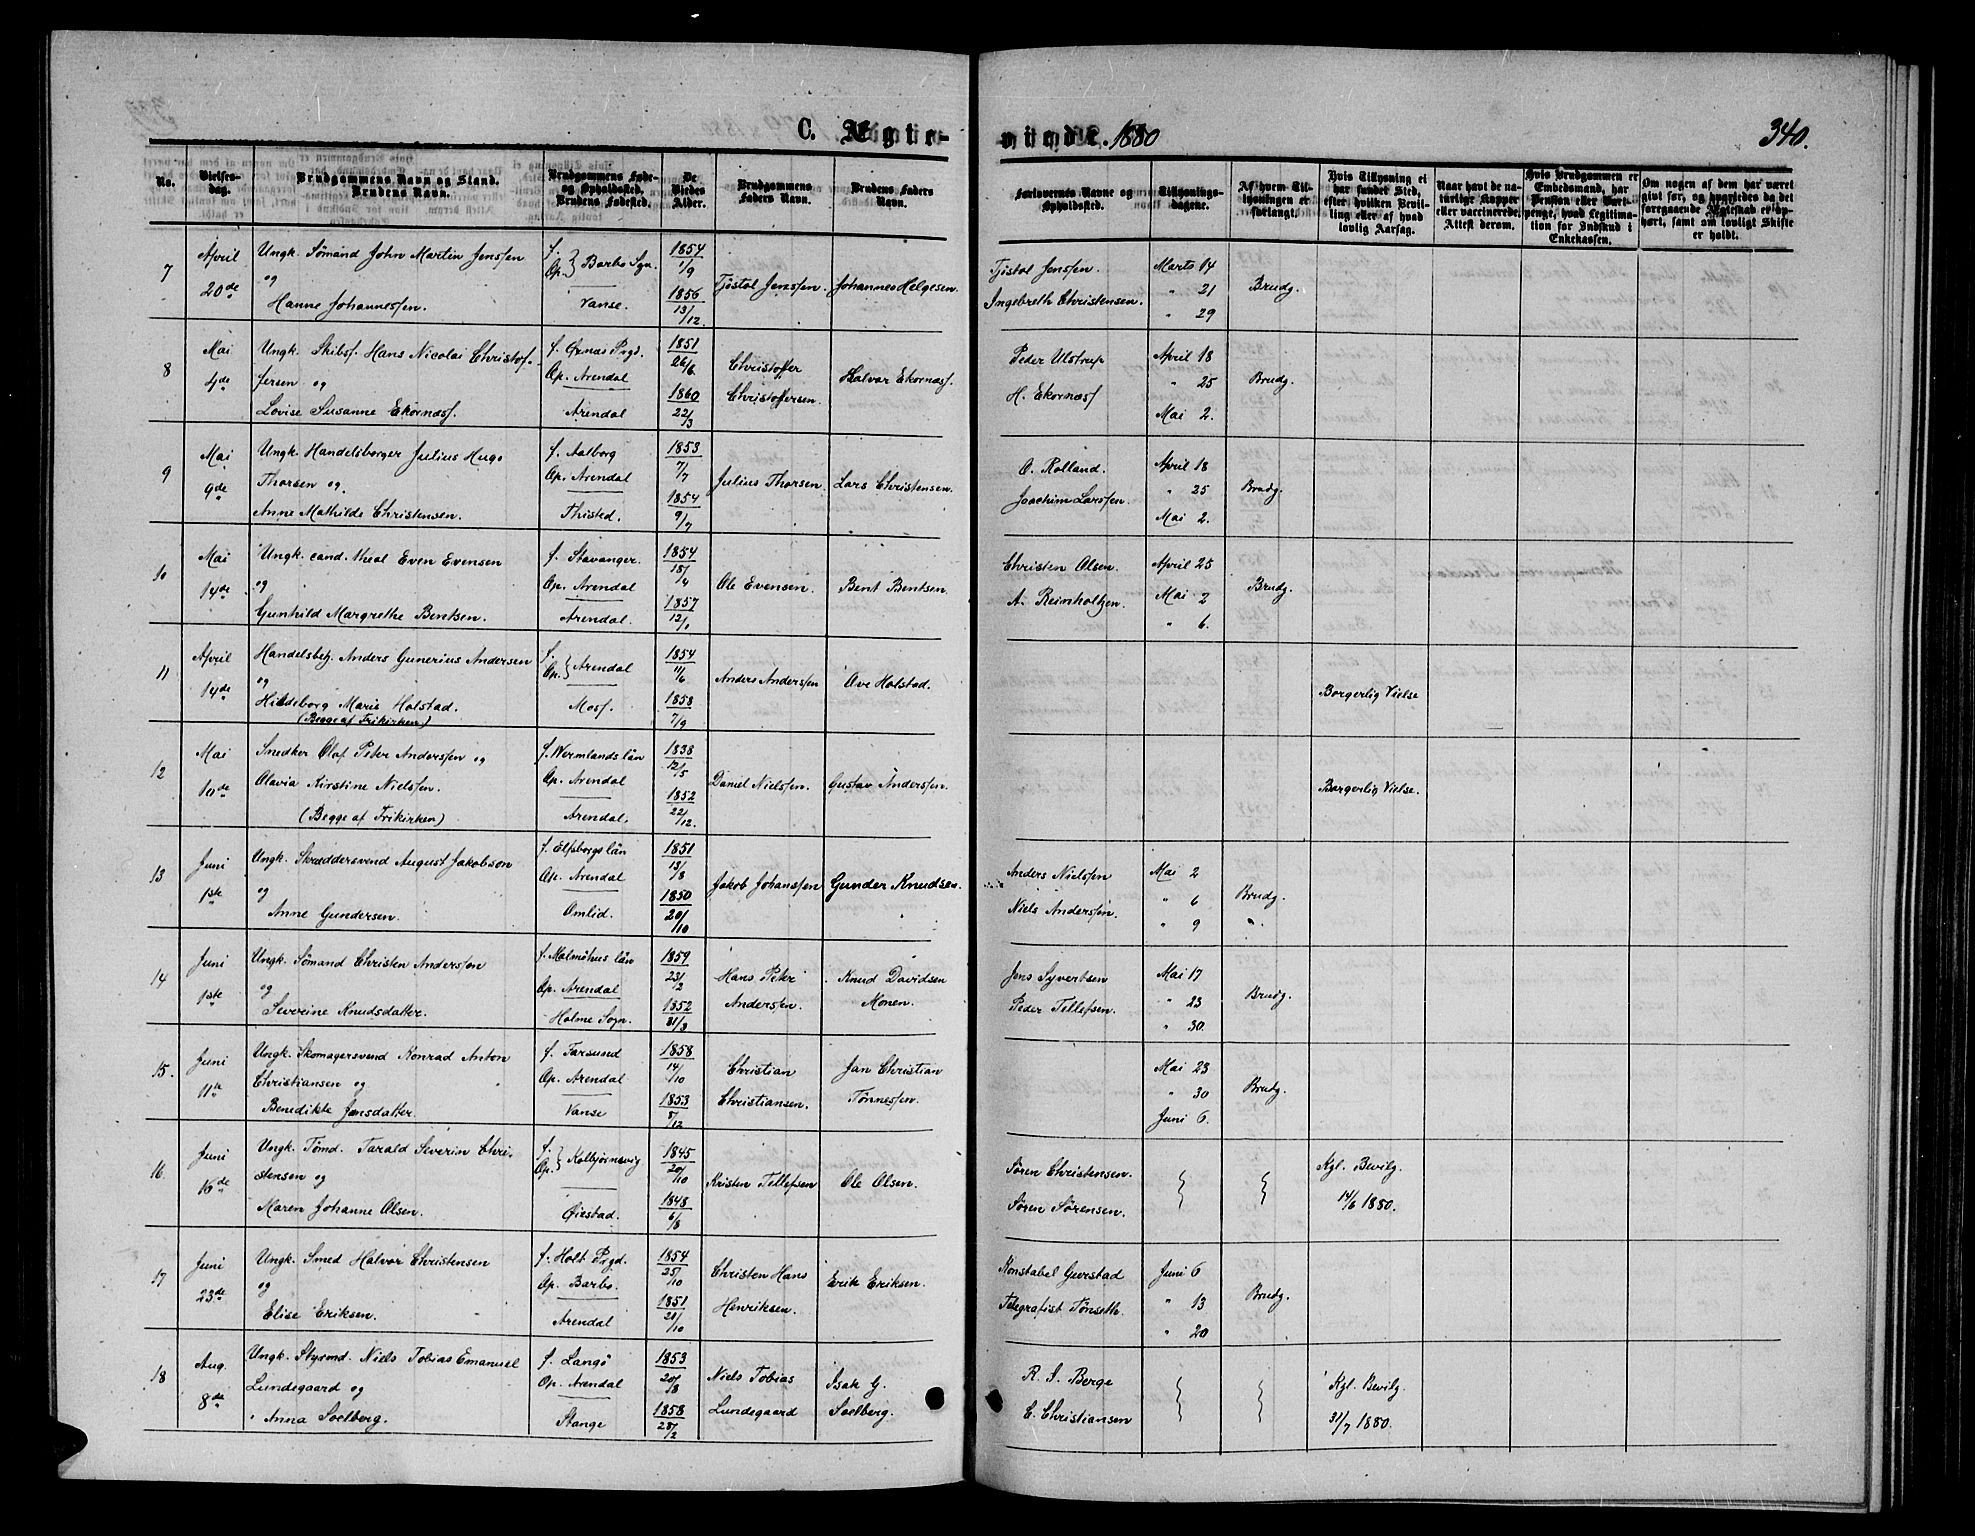 C. Ægte-
viede. 1880
340.
No.
Vielses-dag.
Brudgommens Navn og Stand. Brudens Navn.
Brudgommens Føde- og Opholdssted. Brudens Fødested.
De Viedes Alder.
Brudgommens Faders Navn.
Brudens Faders Navn.
Forlovernes Navne og Opholdssted.
Tillysnings-dagene.
Af hvem Til-lysningen er forlangt.
Hvis Tillysning ei har fundet Sted, efter hvilken Bevil-ling eller af hvad lovlig Aarsag.
Naar havt de na-turlige Kopper eller vaccinerede. Attest derom.
Hvis Brudgommen er Embedsmand, har Pension eller Vart-penge, hvad Legitima-tion for Indskud i Enkekassen.
Om nogen af dem har været givt før, og hvorledes da det foregaaende Ægteskab er op-hørt, samt om lovligt Skifte er holdt.
7 April 20de
Ungk. Sömand John Martin Jenssen
og
Hanne Johannessen.
f. Op. } Barbo Sgn.
Vanse.
1854 1/9
1856 13/12.
Tjöstol Jenssen.
Johannes Helgesen.
Tjöstol Jenssen.
Ingebreth Christensen.
Marts 14
" 21
" 29
Brudg.
8 Mai 4de
Ungk. Skibsf. Hans Nicolai Christof-
fersen og
Lovise Susanne Ekornæss.
f. Öxnæs Prgd.
Op. Arendal
Arendal
1851 26/6
1860 22/3
Christoffer
Christoffersen.
Halvor Ekornæss.
Peder Ulstrup
H. Ekornæss
April 18
" 25
Mai 2.
Brudg.
9 Mai 9de
Ungk. Handelsborger Julius Hugo
Thorsen og
Anne Mathilde Christensen.
f. Aalborg
Op. Arendal
Thisted.
1853 7/7
1854 9/7
Julius Thorsen.
Lars Christensen.
O. Rolland.
Joachim Larssen.
April 18
" 25
Mai 2.
Brudg.
10 Mai 14de
Ungk. cand. theol Even Evensen
og
Gunhild Margrethe Bentsen.
f. Stavanger.
Op. Arendal
Arendal.
1854 18/4
1857 12/1
Ole Evensen.
Bent Bentsen.
Christen Olsen.
A. Reinholtzen.
April 25
Mai 2
" 6.
Brudg.
11 April 14de
Handelsbetj. Anders Gunerius Andersen
og
Hildeborg Marie Holstad.
(Begge af Frikirken)
f. Op. } Arendal
Moss.
1854 11/6
1858 7/9
Anders Anderssen
Ove Holstad.
Borgerlig Vielse
12 Mai 10de
Snedker Olaf Peter Anderssen og
Olavia Kirstine Nielssen.
(Begge af Frikirken)
f. Wermlands län
Op. Arendal
Arendal.
1838 12/5
1852 22/12.
Daniel Nielssen.
Gustav Anderssen.
Borgerlig Vielse.
13 Juni 1ste
Ungk. Skræddersvend August Jakobson
og
Anne Gundersen.
f. Elfsborgs län
Op. Arendal
Omlid.
1851 13/8
1850 20/10
Jakob Johanssen
Gunder Knudsen.
Anders Nielssen
Niels Anderssen.
Mai 2
" 6
" 9
Brudg.
14 Juni 1ste
Ungk. Sömand Christen Anderssen
og
Severine Knudsdatter.
f. Malmöhus län
Op. Arendal
Holme Sogn.
1859 23/2
1852 31/3
Hans Peter
Anderssen.
Knud Davidsen
Monen.
Jens Syvertsen
Peder Tellefsen.
Mai 17
" 23
" 30
Brudg.
15. Juni 11te
Ungk. Skomagersvend Konrad Anton
Christiansen og
Benedikte Jansdatter.
f. Farsund
Op. Arendal
Vanse
1858 14/10
1853 8/12
Christian
Christiansen.
Jan Christian
Tönnessen.
Mai 23
" 30
Juni 6.
Brudg.
16. Juni 16de
Ungk. Tömd. Tarald Severin Chri-
stensen og
Maren Johanne Olsen.
f. Op. } Kolbjörnsvig
Öiestad.
1845 20/10
1848 6/8
Kristen Tellefsen
Ole Olsen.
Sören Christensen.
Sören Sörensen.
Kgl. Bevilg.
14/6 1880.
17 Juni 23de
Ungk. Smed Halvor Christensen
og
Elise Eriksen.
f. Holt Prgd.
Op. Barbo.
Arendal
1854 25/10
1851 21/10
Christen Hans
Henriksen.
Erik Eriksen.
Konstabel Gurstad
Telegrafist Tönseth
Juni 6
" 13
" 20
Brudg.
18 Aug. 8de
Ungk. Styrmd. Niels Tobias Emanuel
Lundegaard og
Anna Soelberg.
f. Langö
Op. Arendal
Stange
1853 20/8
1858 28/2
Niels Tobias
Lundegaard
Isak G.
Soelberg.
R. S. Berge
C. Christiansen
Kgl. Bevilg.
31/7 1880.